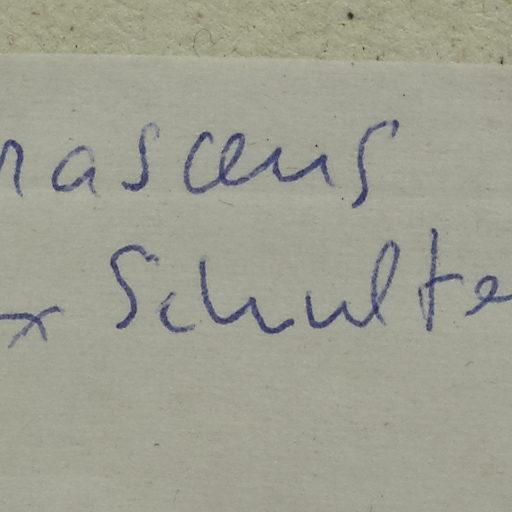 nascens
x Schulte